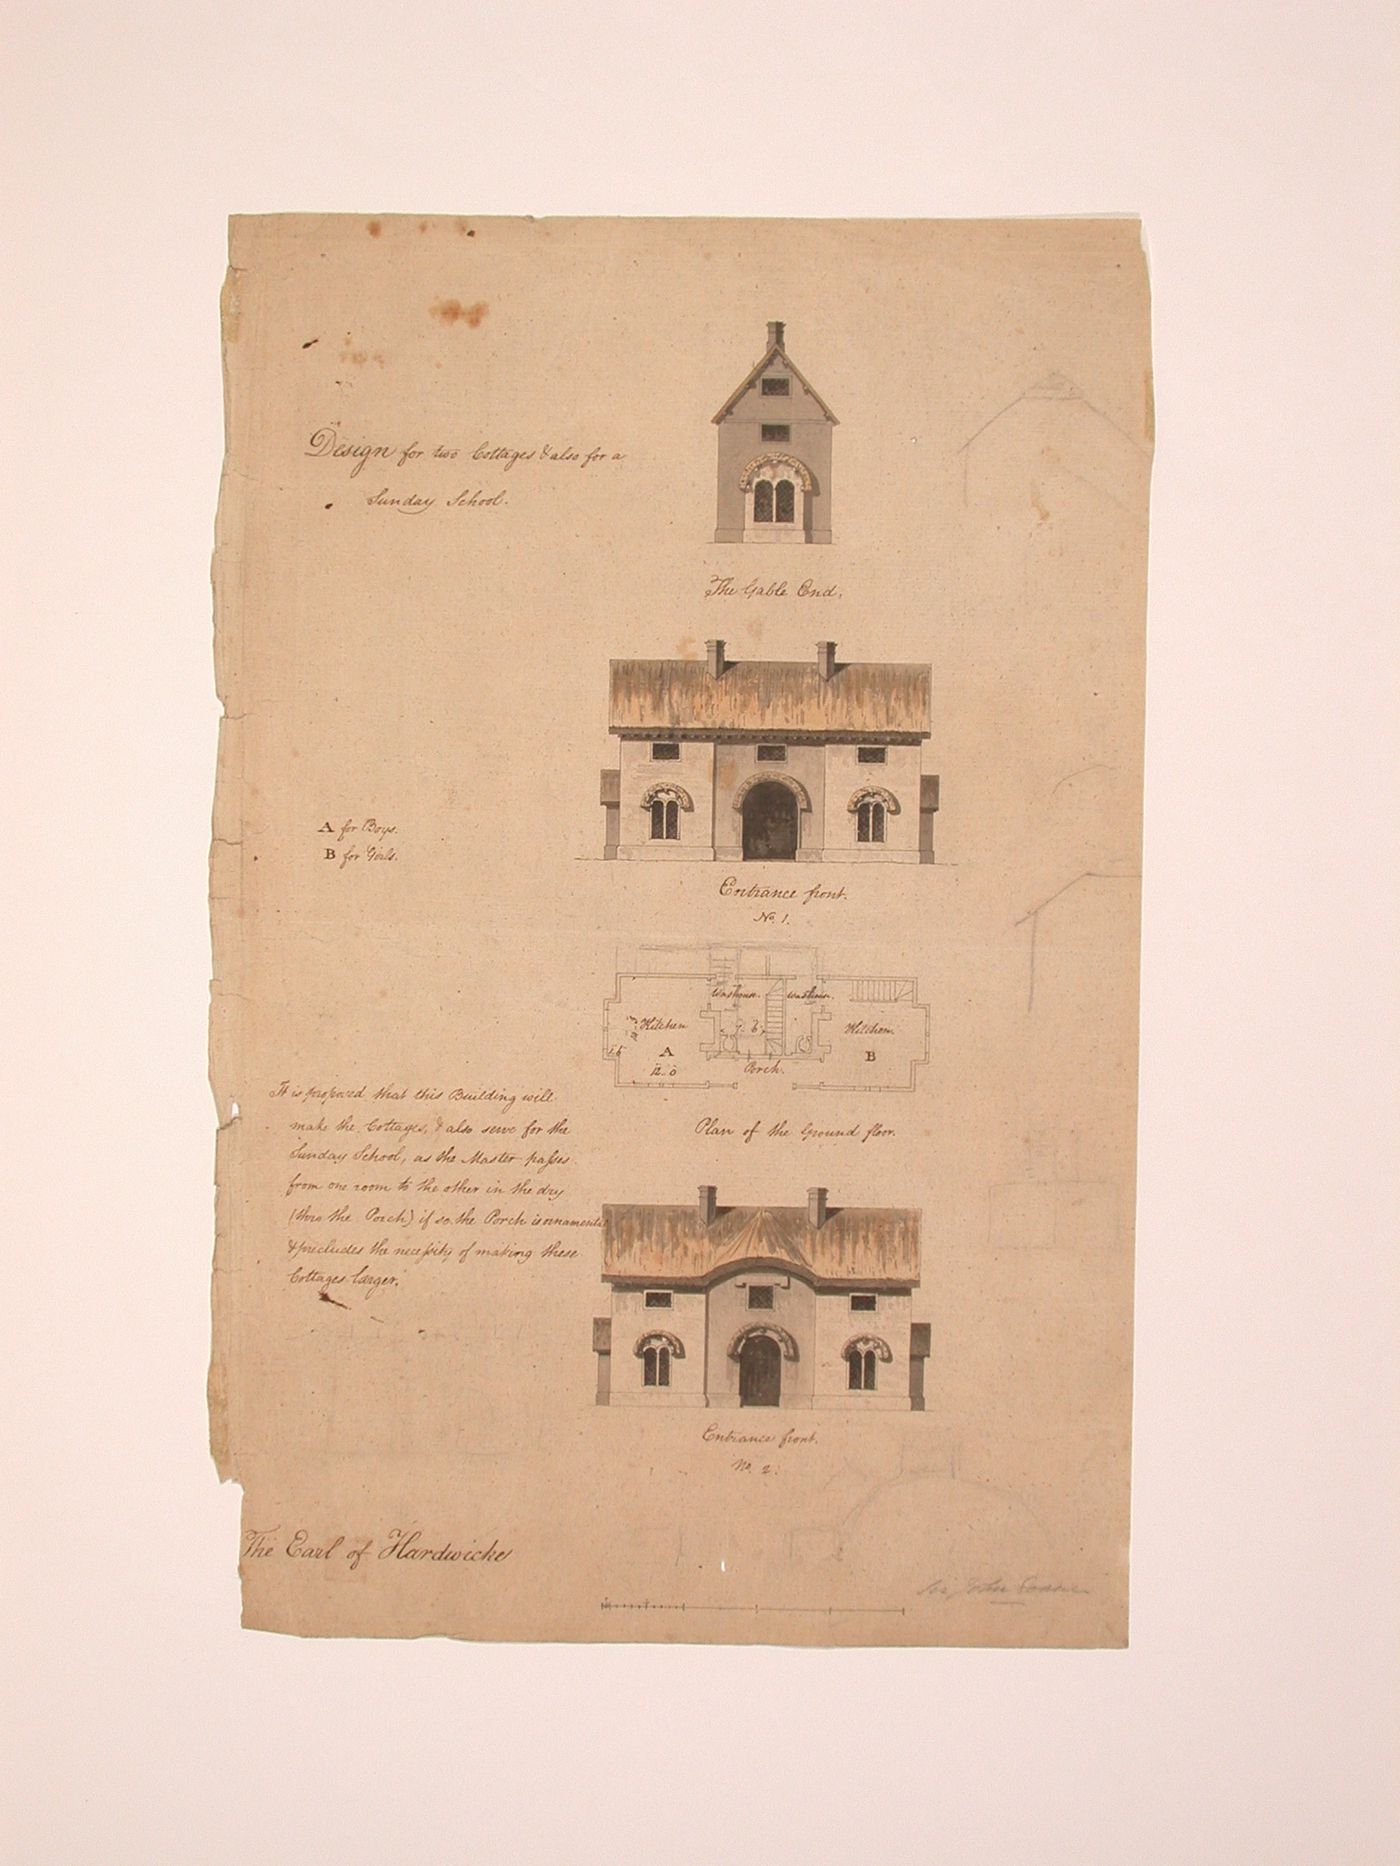 Design for two Cottages & also for a
Sunday School.
The Gable End.
A for Boys.
B for Girls.
Entrance front.
No. 1.
Washouse. Washouse.
Kitchen 7.. 6 Kitchen
A B
12.. 0 Porch.
Plan of the Ground floor.
It is proposed that this Building will
make the Cottages, & also serve for the
Sunday School, as the Master passes
from one room to the other in the dry
(thro the Porch) if so the Porch is ornamental
& precludes the necessity of making these
Cottages larger.
Entrance front.
No. 2.
The Earl of Hardwicke
Sir John Soane